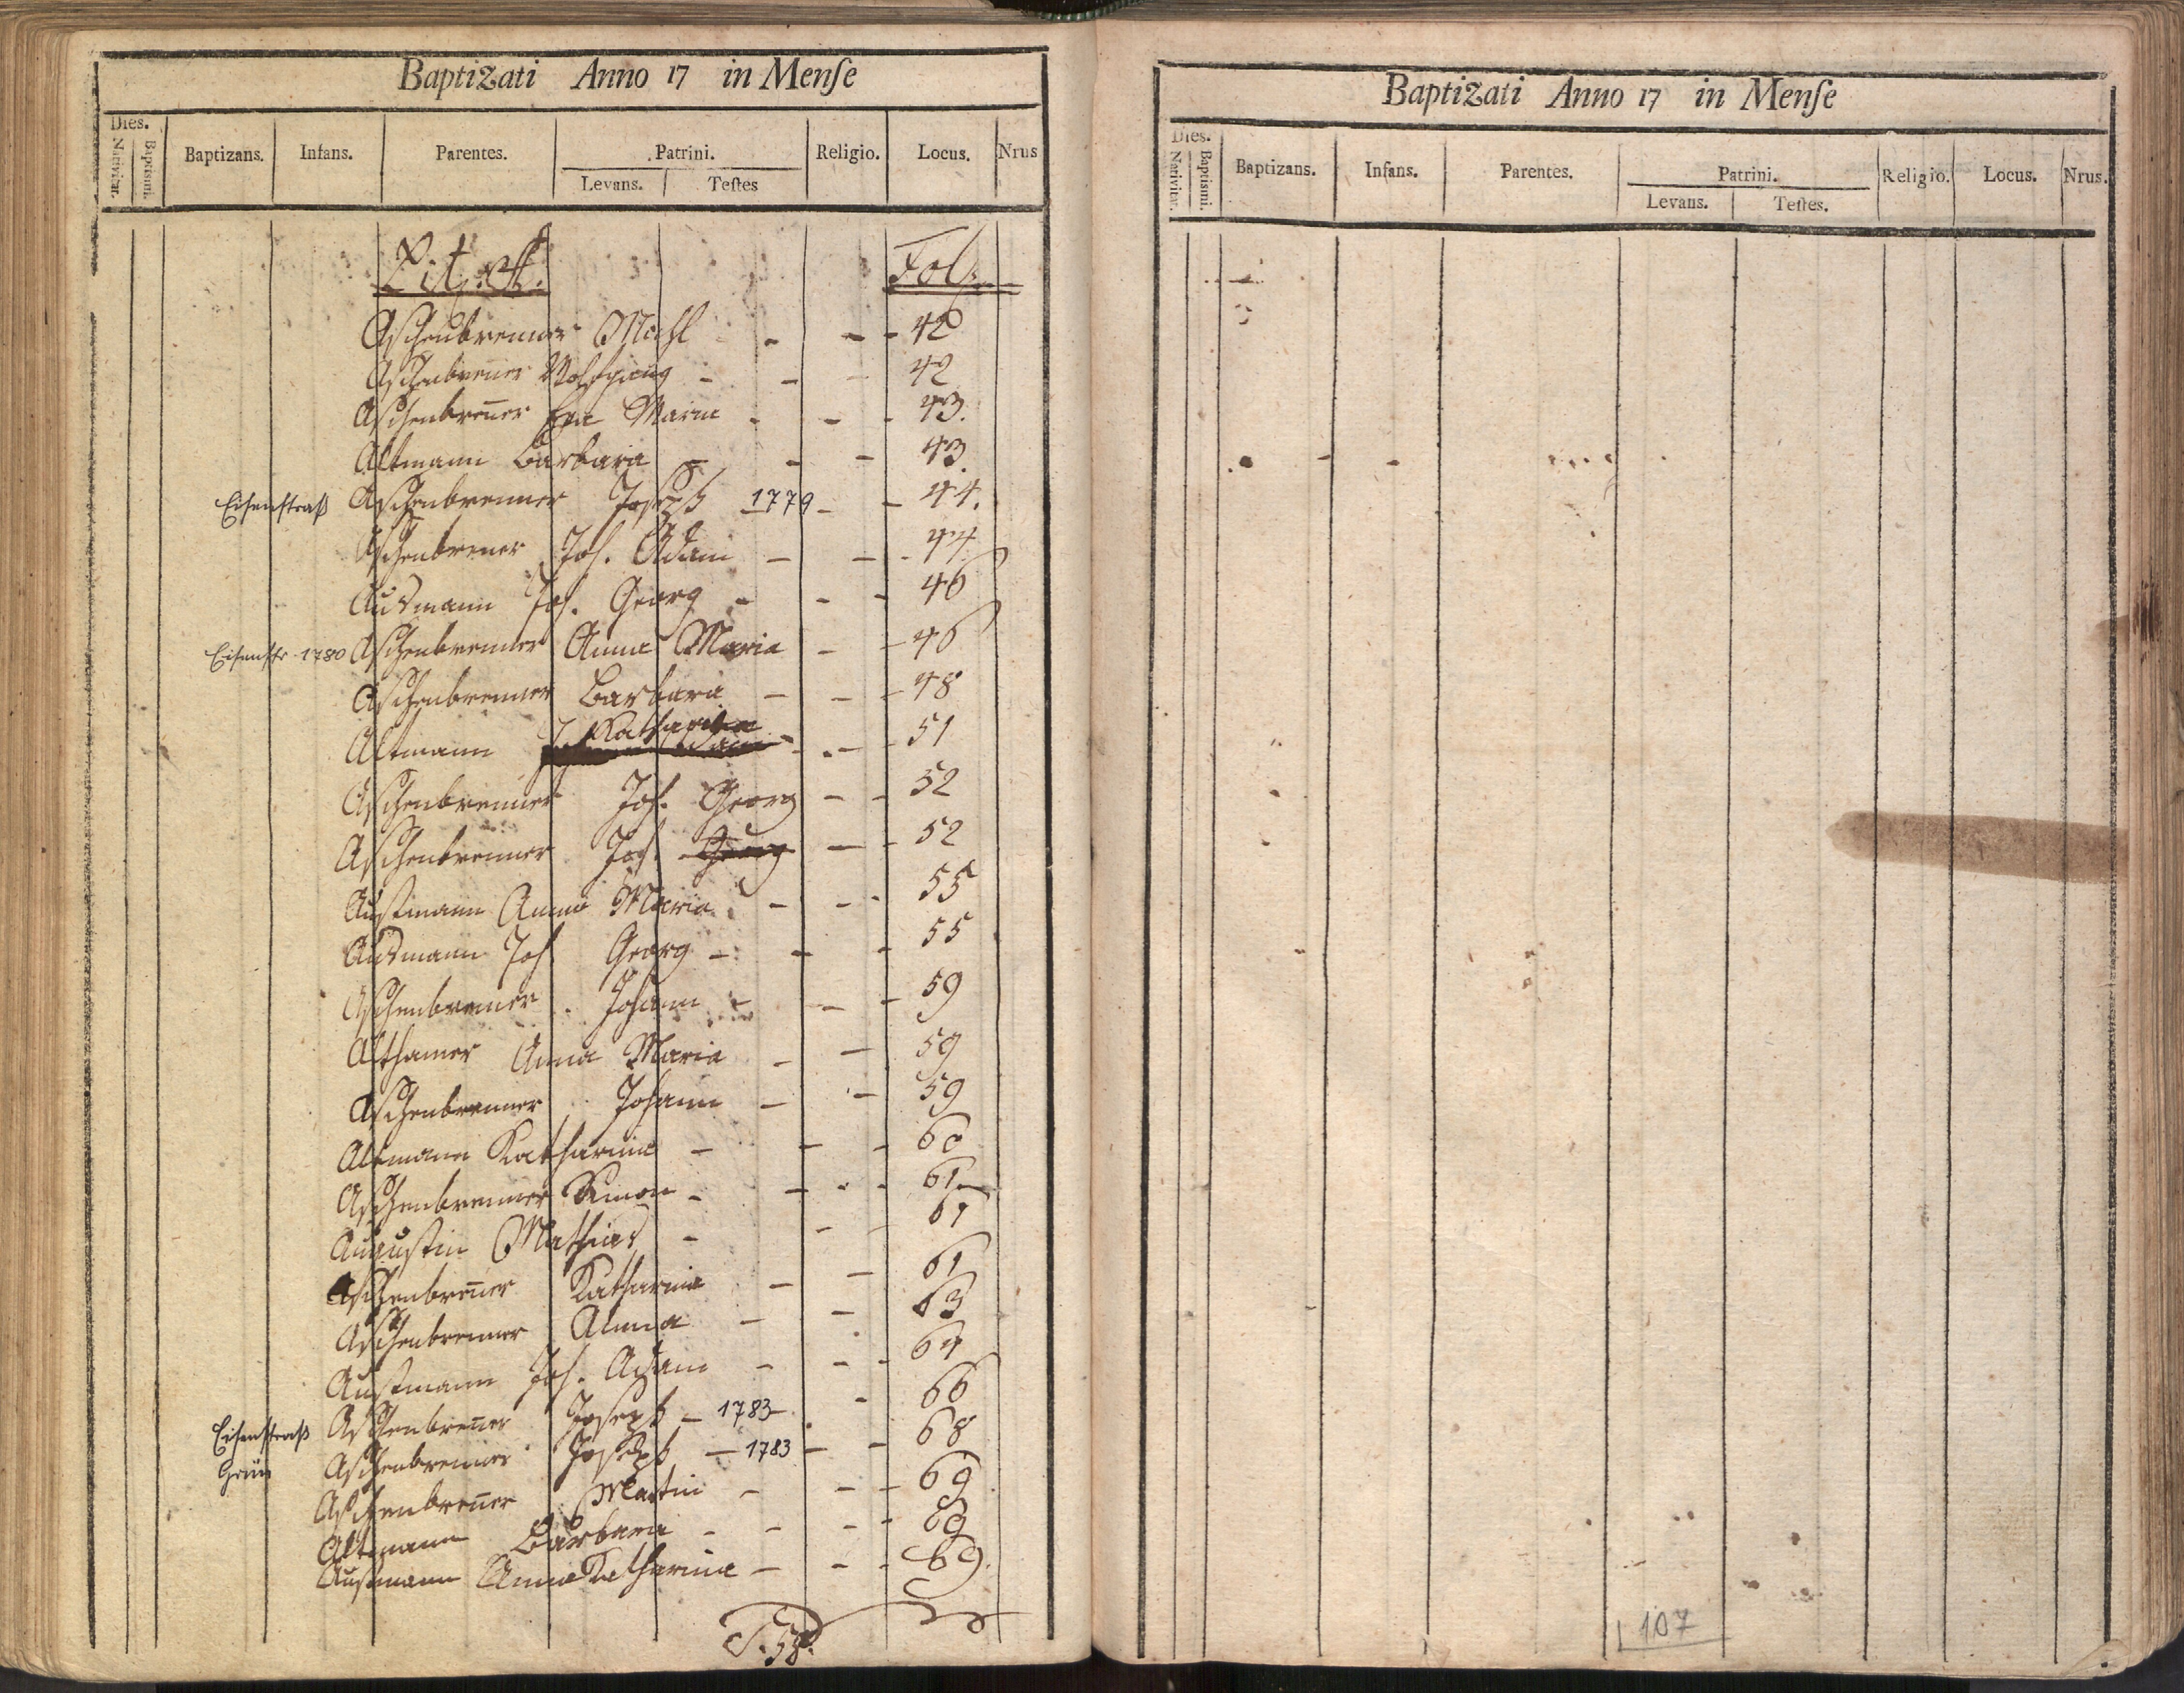 Baptizati Anno 17 in Menſe
Dies. Nativitat. Baptismi. Baptizans. Infans. Parentes. Patrini. Levans. Teſtes Religio. Locus. Nrus
Lit. A. Fol.
Aschenbrenner - - 42
Aschenbreñer Wolfgang - - - 42
Aschenbreñer Eva Maria - - - 43.
Altmann Barbara - - - 43.
Eisenstraß Aschenbrenner Joseph 1779 - - 44.
Aschenbrener Joh. Adam - - - 44
Joh. Georg - - - 46
Eisenstr. 1780 Aschenbrenner Anna Maria - - 46
Aschenbrenner Barbara - - - 48
Altmann Katharina - - - 51
Aschenbrenner Joh. Georg - - 52
Aschenbrenner Joh. Georg - - 52
Austmann Anna Maria - - - 55
Joh. Georg - - - 55
Aschenbrenner Johann - - - 59
Althamer Anna Maria - - 59
Aschenbrenner Johann - - 59
Altmann Katharina - - - 60
Aschenbrenner Simon - - - - 61
Augustin Mathias - - 61
Aschenbreñer Katharina - - 61
Aschenbrenner Anna - - 63
Austmann Joh. Adam - - - 64
Eisenstraß Aschenbreñer Joseph - 1783 - - 66
Grün Aschenbrenner Joseph - 1783 - - 68
Aschenbreñer Martin - - - 69
Altmann Barbara - - - - 69
Austmann Anna Katharina - - - 69.
Baptizati Anno 17 in Menſe
Dies. Nativitat. Baptismi. Baptizans. Infans. Parentes. Patrini. Levans. Teſtes. Religio. Locus. Nrus.
107